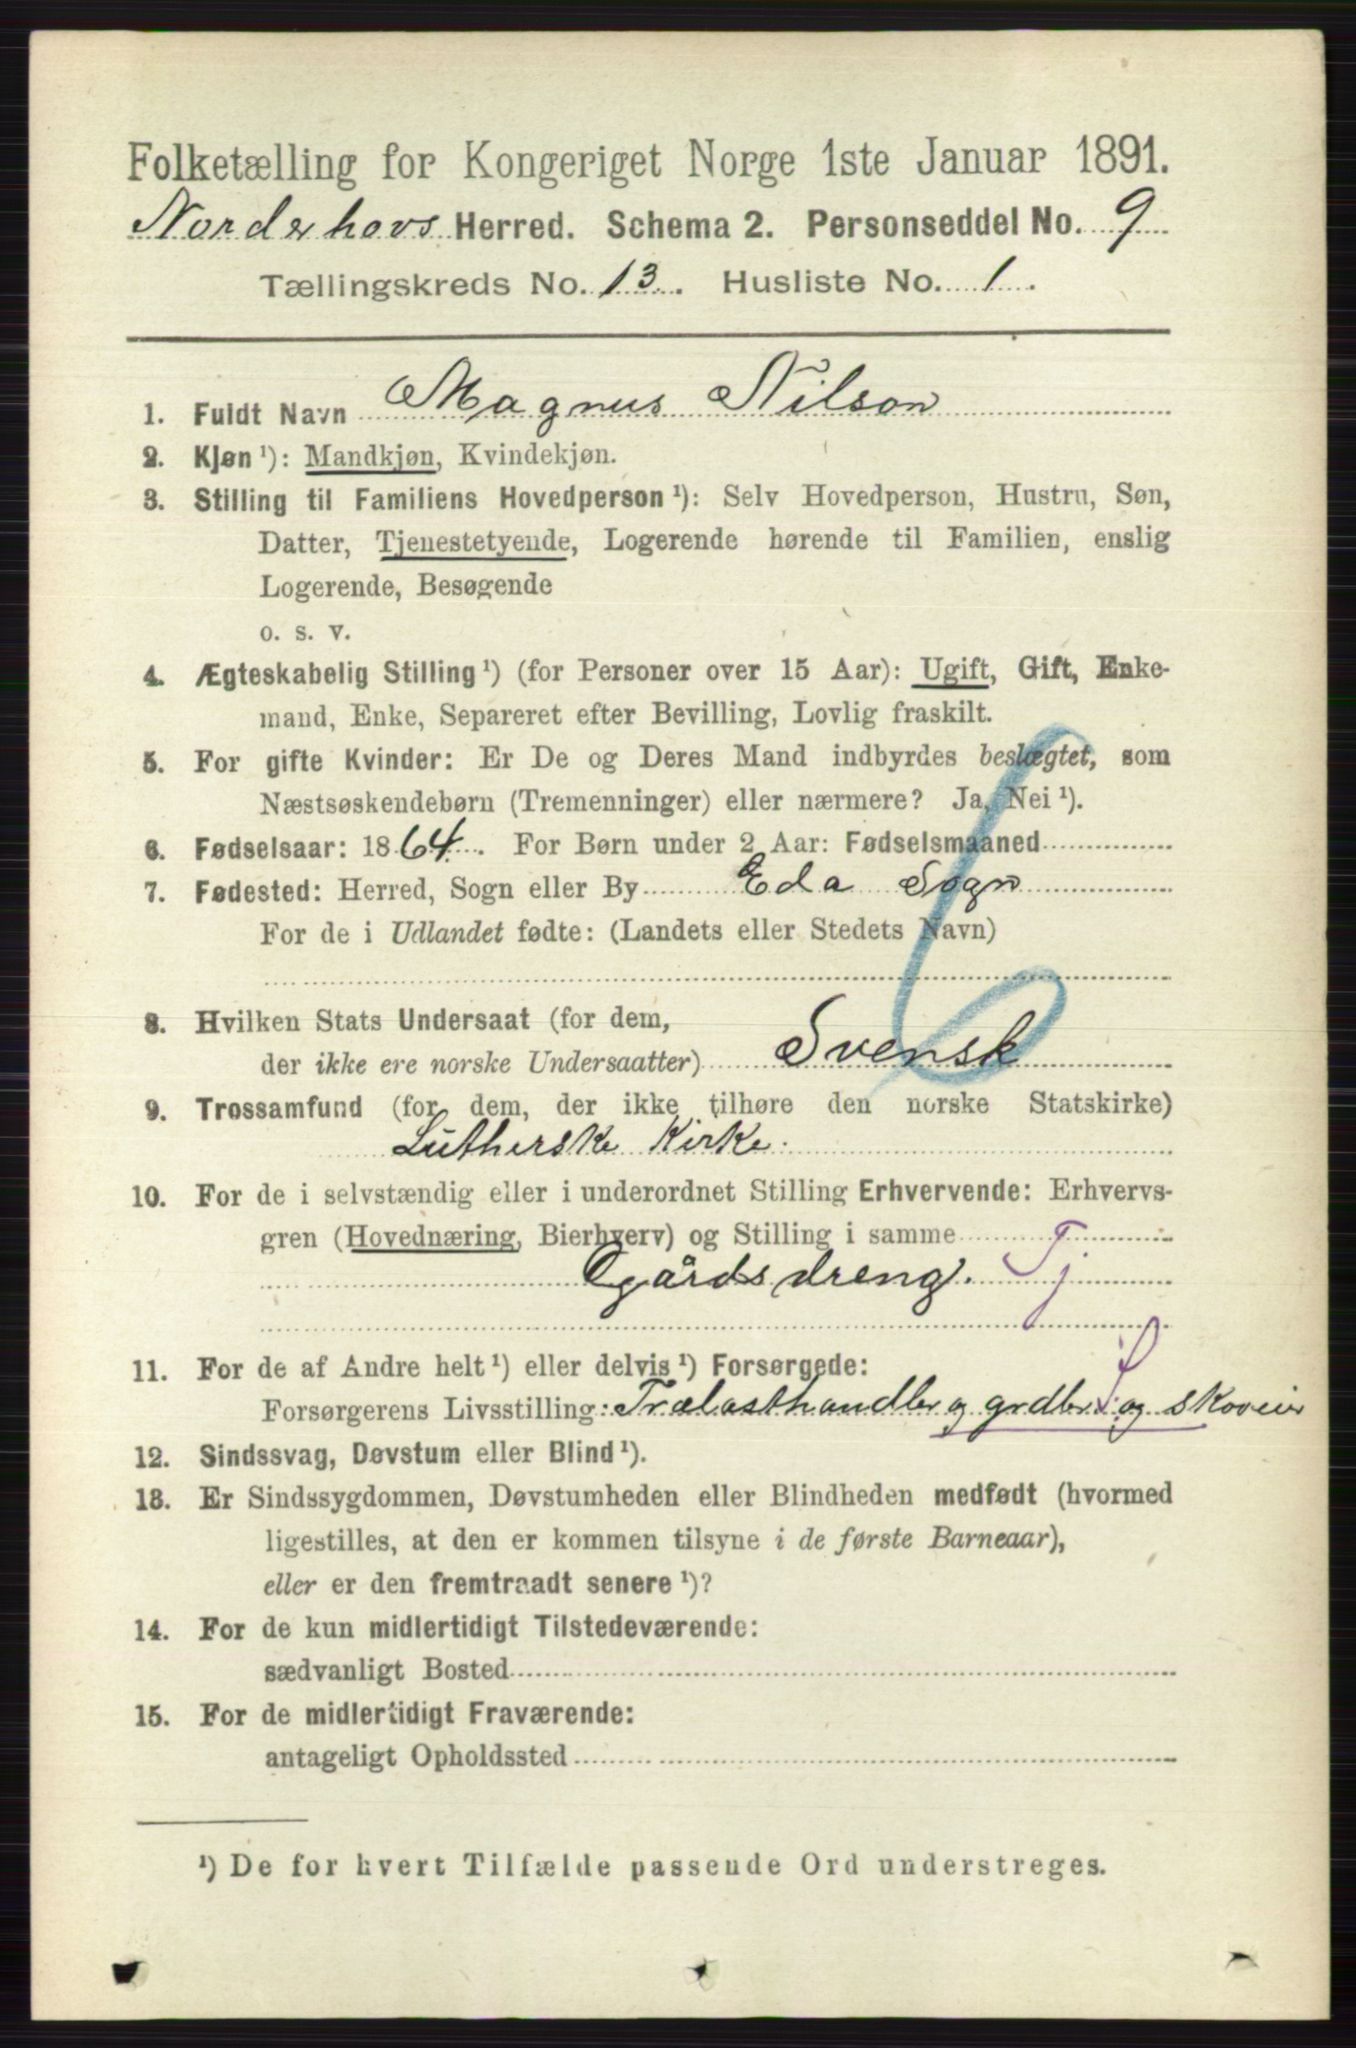 Folketælling for Kongeriget Norge 1ste Januar 1891.
Norderhovs Herred. Schema 2. Personseddel No. 9
Tællingskreds No. 13. Husliste No. 1.
1. Fuldt Navn Magnus Nilson
2. Kjøn ¹): Mandkjøn, Kvindekjøn.
3. Stilling til Familiens Hovedperson ¹): Selv Hovedperson, Hustru, Søn,
Datter, Tjenestetyende, Logerende hørende til Familien, enslig
Logerende, Besøgende
o. s. v.
4. Ægteskabelig Stilling ¹) (for Personer over 15 Aar): Ugift, Gift, Enke-
mand, Enke, Separeret efter Bevilling, Lovlig fraskilt.
5. For gifte Kvinder: Er De og Deres Mand indbyrdes beslægtet, som
Næstsøskendebørn (Tremenninger) eller nærmere? Ja, Nei ¹).
6. Fødselsaar: 1864. For Børn under 2 Aar: Fødselsmaaned
7. Fødested: Herred, Sogn eller By Eda Sogn
For de i Udlandet fødte: (Landets eller Stedets Navn)
8. Hvilken Stats Undersaat (for dem,
der ikke ere norske Undersaatter) Svensk
9. Trossamfund (for dem, der ikke tilhøre den norske Statskirke)
Lutherske Kirke.
10. For de i selvstændig eller i underordnet Stilling Erhvervende: Erhvervs-
gren (Hovednæring, Bierhverv) og Stilling i samme Tj
Gårdsdreng.
11. For de af Andre helt ¹) eller delvis ¹) Forsørgede:
Forsørgerens Livsstilling: Trælasthandler og grdbr S og skoveier
12. Sindssvag, Døvstum eller Blind ¹).
13. Er Sindssygdommen, Døvstumheden eller Blindheden medfødt (hvormed
ligestilles, at den er kommen tilsyne i de første Barneaar),
eller er den fremtraadt senere ¹)?
14. For de kun midlertidigt Tilstedeværende:
sædvanligt Bosted
15. For de midlertidigt Fraværende:
antageligt Opholdssted
¹) De for hvert Tilfælde passende Ord understreges.